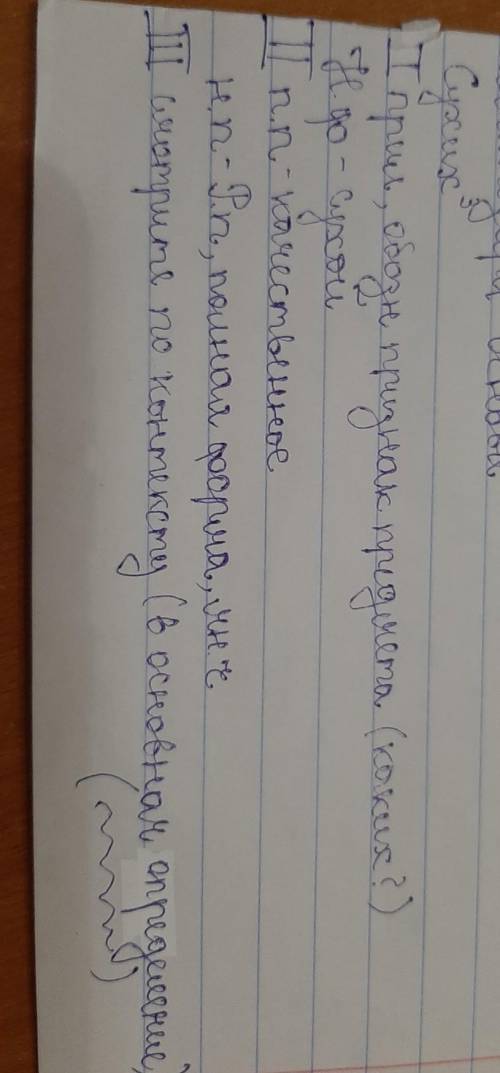 основой
Сухих³
I прил, обозн признак предмета (каких?)
Н.ф - сухой
II п.п - качественное
н.п - Р.п, полная форма, мн.ч
III смотрите по контексту (в основном определение,
)